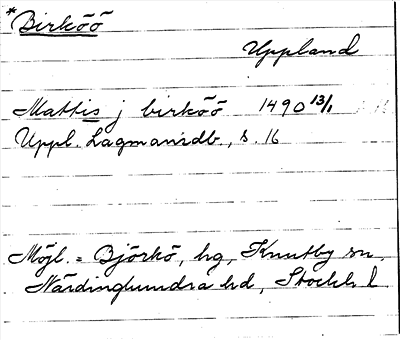 *Birköö
Uppland
Mattis j birköö 1490 13/1
Uppl. Lagmansdb., s. 16
Möjl. = Björkö, hg, Knutby sn,
Närdinghundra hd, Stockh. l